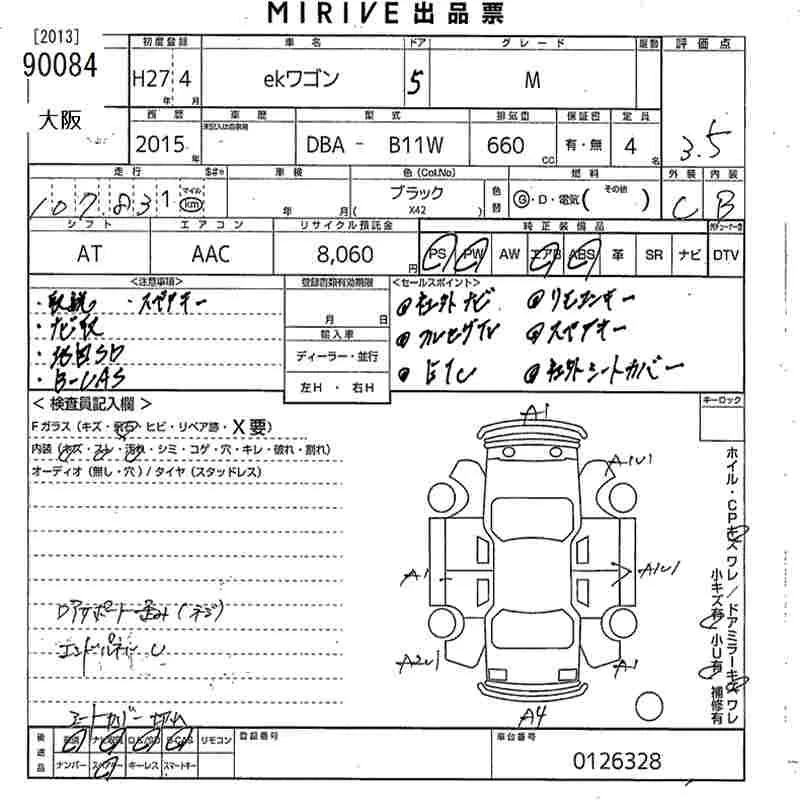 MIRIVE 出品票
[2013]
90084
大阪
初度登録 車名 ドア グレード 駆動 評価点
H27 4 ekワゴン 5 M
年 月
西暦 車歴 型式 排気量 保証書 定員
2015 年 未記入は自家用 DBA - B11W 660 CC 有・無 4 名 3.5
走行 車検 色(Col.No) 燃料 外装 内装
107,831 マイル km 年 月 ブラック 色替 Ⓖ・D・電気( その他 ) C B
( X42 )
シフト エアコン リサイクル預託金 純正装備品
AT AAC 8,060 円 PS PW AW エアB ABS 革 SR ナビ DTV
<注意事項> 登録書類有効期限 <セールスポイント>
・取説 ・スペアキー
・ナビ取
・地図SD
・B-CAS
月 日
輸入車
ディーラー・並行
左H ・ 右H
●社外ナビ ●リモコンキー
●フルセグTV ●スペアキー
●ETC ●社外シートカバー
キーロック
<検査員記入欄>
Fガラス(キズ・飛石・ヒビ・リペア跡・X要)
内装(キズ・スレ・汚れ・シミ・コゲ・穴・キレ・破れ・割れ)
オーディオ(無し・穴)/タイヤ(スタッドレス)
A1
A1U1
A1
A1U1
A2U1
A1
A4
ホイル・CPキズ ワレ/ドアミラーキズ ワレ
小キズ有 小U有 補修有
シートカバー
後送品 取説 ナビ取説 B-CAS リモコン
ナンバー スペアキー キーレス スマートキー
登録番号
車台番号
0126328